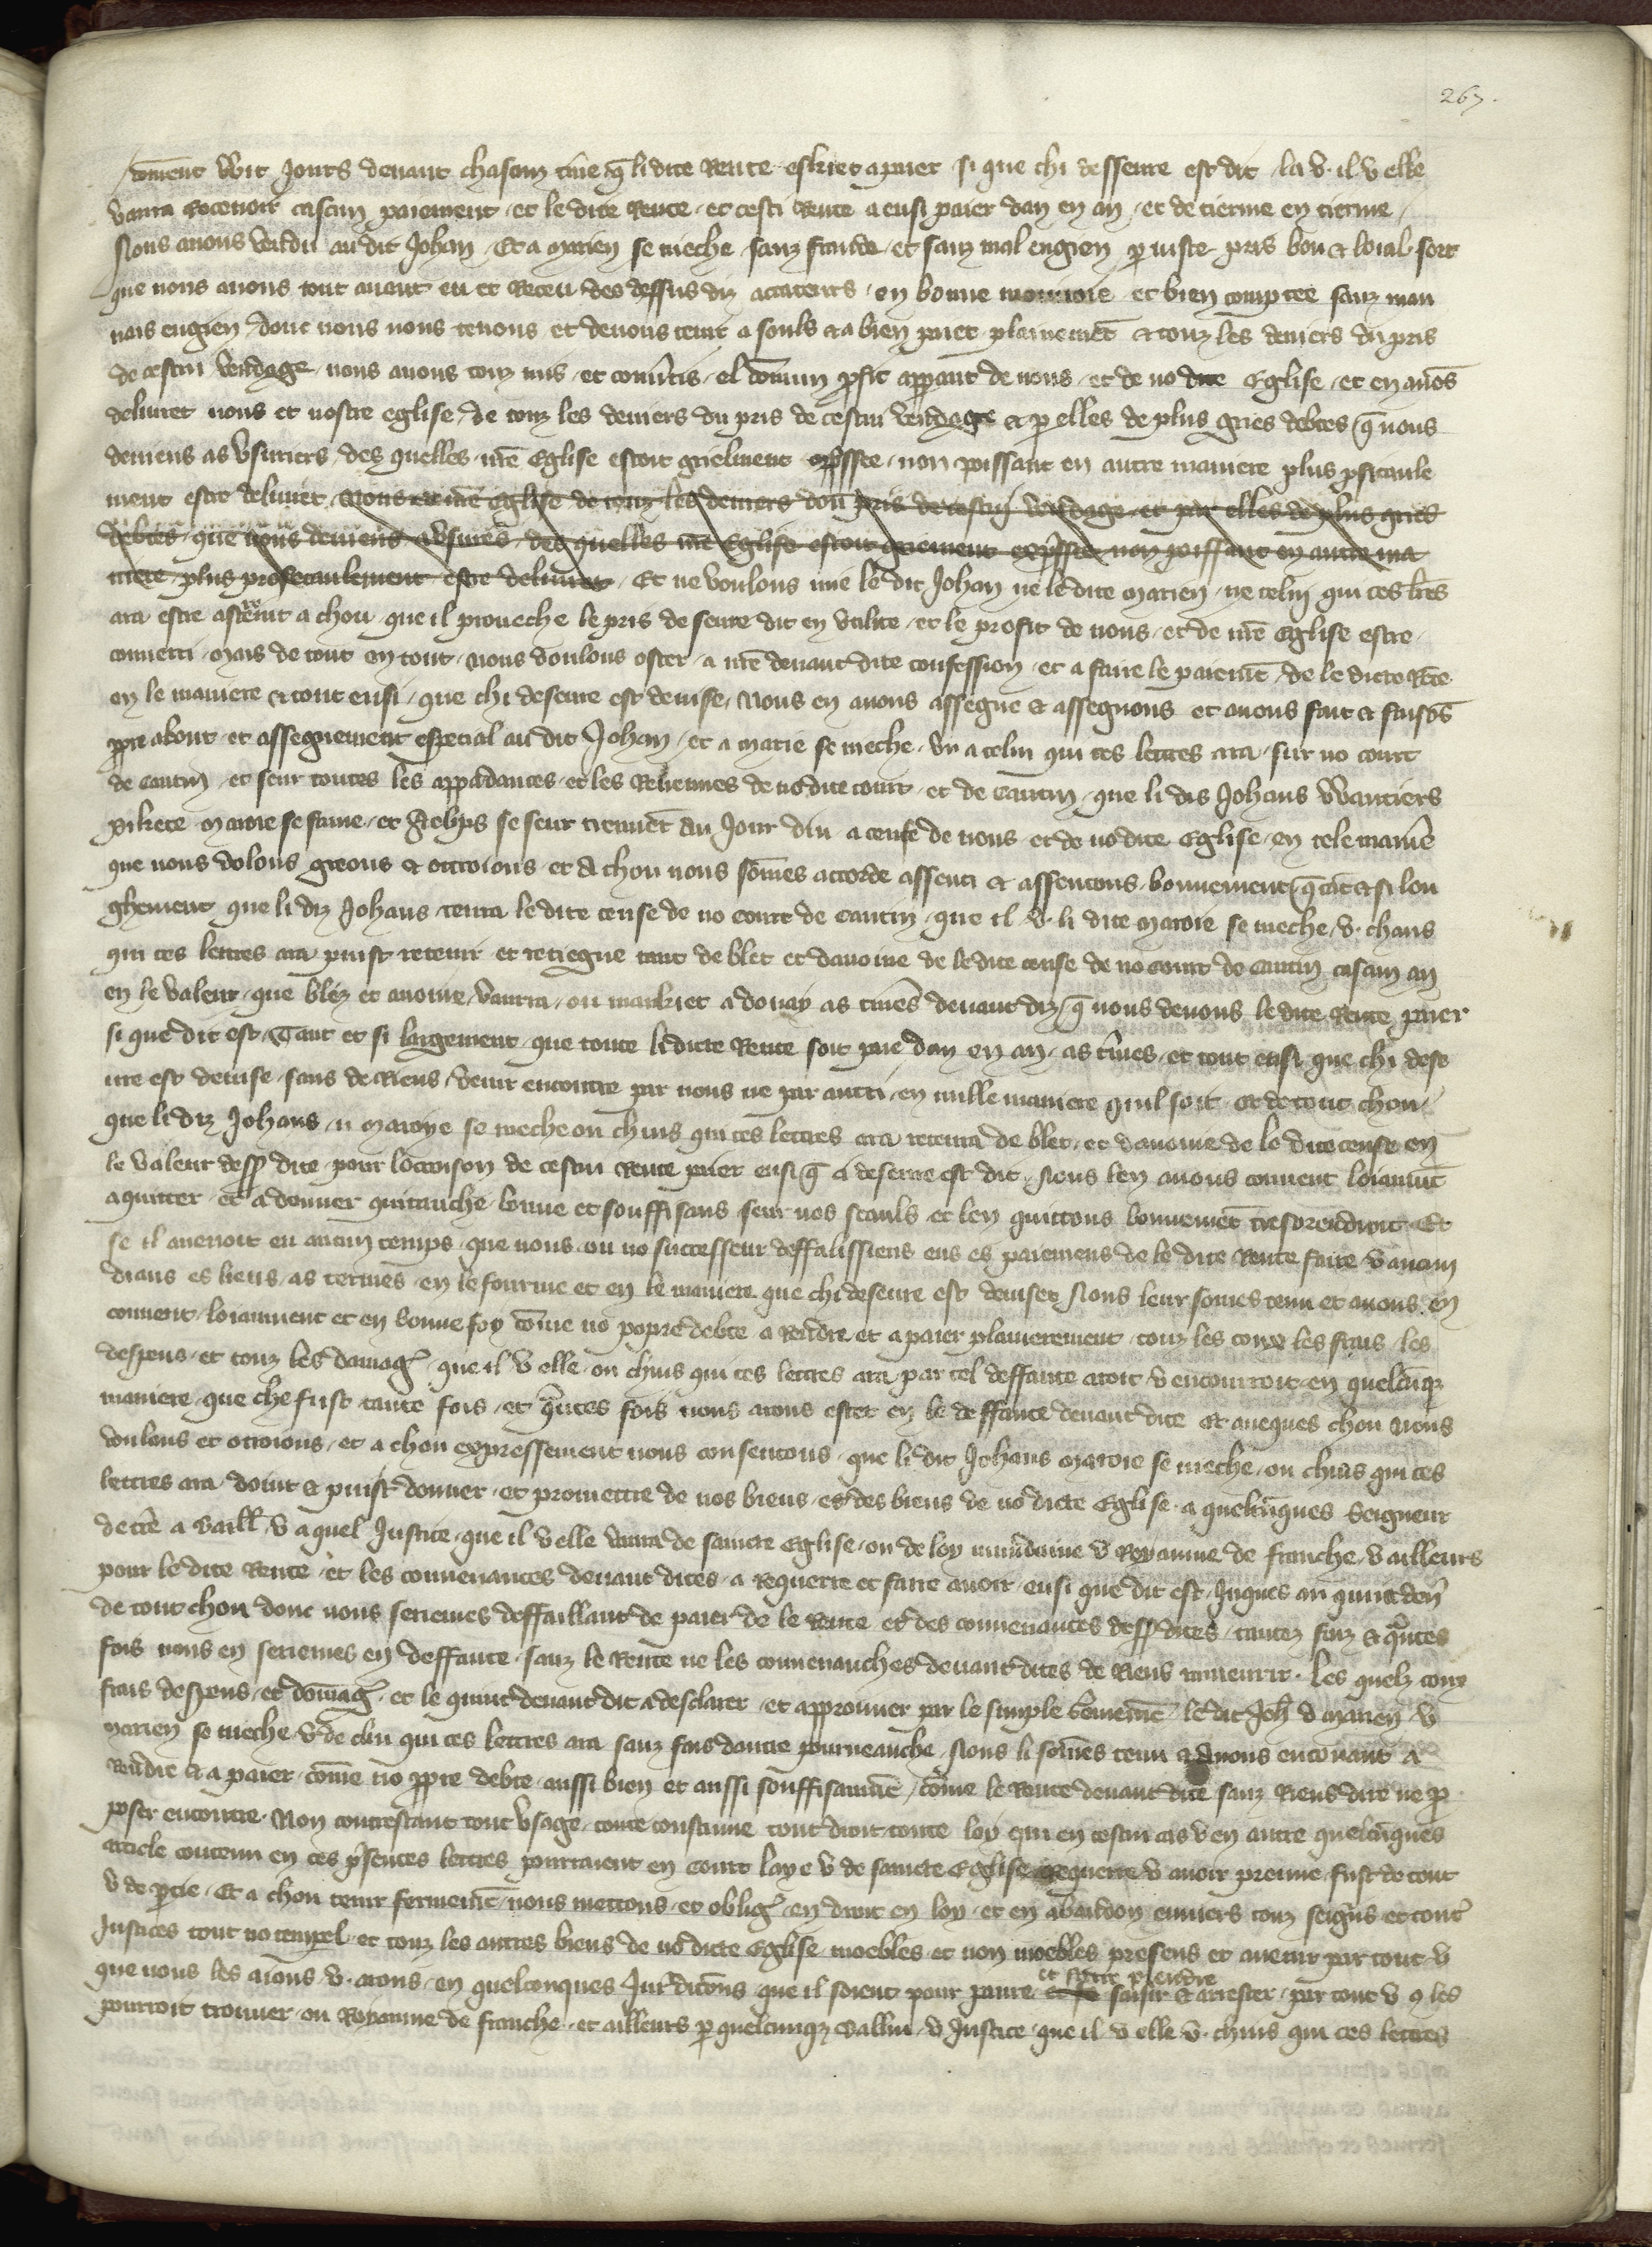 267.
coment wit Jours deuant chascun tme q li dite Rente eskiet a paier si que chi desseure est dit la v. il v elle
vaura Recevoir cascun paiement et le dite Rente et cesti Rente a ensi paier dan en an et de tierme en tierme
Nous auons vendu au dit Johan Et a Marien se nieche sanz fraude et sanz mal engien p iuste pris bon & loial sort
que nous auons tout auant eu et Receu des dessus diz acateurs en bonne monnoie et bien comptee sanz mau
uais engien donc nous nous tenons et deuons tenir a souls & a bien paiet plainemet & touz les deniers du pris
de cestui vendage nous auons touz mis et conuertis el comun pfit apparant de nous et de no dite Eglise et en auos
deliuret nous et nostre eglise de touz les deniers du pris de cestui vendage & p elles de plus gries debtes q nous
deuiens as vsuriers des quelles nre Eglise estoit griefment opssee non poissant en autre maniere plus pfitaule
ment estre deliuret Nous et nre Eglise de touz les deniers dou pris de cestuj vendage et par elles de plus gries
debtes que nous deuiens a vsures des quelles nre Eglise estoit griement oppressee non poissant en autre ma
niere plus profitaulement estre deliuret Et ne voulons mie le dit Johan ne le dite Marien ne celui qui ces lres
ara estre astraint a chou que il preueche le pris de seure dit en vtilite et le profit de nous et de nre Eglise estre
conuerti Mais de tout en tout Nous voulons ester a nre deuant dite confession et a faire le paiemet de le dicte Rete
en le maniere & tout ensi que chi deseure est deuise Nous en auons assegne & assegnons et auons fait & faisos
ppre about et assegnement especial au dit Johan et a Marie se nieche vu a celui qui ces lettres ara sur no court
de Cantin et seur toutes les appadances et les Reuenues de no dite court et de Cantin que li dis Johans Wautiers
pikete Maroie se fame et Aelips se seur tienuet au Jour dui a cense de nous et de no dite Eglise en tele manie
que nous volons greons & ottroions et a chou nous somes accorde assenti & assentons bonnement q tat & si lon
ghement que li diz Johans tenra le dite cense de no court de Cantin que il v. li dite Maroie se nieche v. chius
qui ces lettres ara puist retenir et retiegne tant de blet et dauoine de le dite cense de no court de Cantin cascun an
en le valeur que blez et auoine vaurra ou markiet a douay as tmes deuant diz q nous deuons le dite Rente paier
si que dit est Tant et si largement que toute li dicte Rente soit paie dan en an as tmes et tout ensi que chi dese
ure est deuise sans de Riens venir encontre par nous ne par autri en nulle maniere quil soit et de tout chou
que li diz Johans u Maroye se nieche ou chius qui ces lettres ara retenra de blet et dauoine de le dite cense en
le valeur dess dite pour locoison de cestui Rente paier ensi q ci deseure est dit Nous len auons conuent loiaumt
aquitter et a donner quitanche bonne et souffisans seur nos seauls et len quittons bonnemet tres orendroit Et
se il auenoit en aucun temps que nous ou no successeur deffalissiens ens es paiemens de le dite Rente faire v aucun
diaus es lieus as termes en le fourme et en le maniere que chi deseure est deuiset Nous leur somes tenu et auons en
conuent loiaument et en bonne foy come no popre debte a Rendre et a paier plainement touz les coux les frais les
despens et touz les damag que il v elle ou chius qui ces lettres ara par tel deffaute aroit v encourroit en quelcuq
maniere que che fust tante fois et qntes fois nous arons estet en le deffaute deuant dite Et aueques chou Nous
voulons et otroions et a chou expressement nous consentons que li dit Johans Maroie se nieche ou chius qui ces
lettres ara doint & puist donner et promettre de nos biens et des biens de no dicte Eglise a quelcuques Seigneur
de tre a baill v a quel Justice que il v elle vaura de saincte Eglise ou de loy mundaine v Royaume de franche v ailleurs
pour le dite Rente et les conuenances deuant dites a Requerre et faire auoir ensi que dit est Juques au quint den
de tout chou donc nous seriemes deffaillant de paier de le Rente et des conuenances dess dites tantez foiz & qntes
fois nous en seriemes en deffaute sanz le Rente ne les conuenanches deuant dites de Riens amenrir Les quelz coux
frais despens et domag et le quint deuant dit a desclarer et approuuer par le simple serement le dit Joh v marien v
Marien se nieche v de chlui qui ces lettres ara sanz fais dautre pourueanche Nous li somes tenu & auons enconuant a
Rendre & a paier come no ppre debte aussi bien et aussi souffisamt come le Rente deuant dite sanz Riens dire ne p
poser encontre Non contrestant tout vsage toute coustume tout droit toute loy qui en cestui cas v en autre quelcuques
article contenu en ces psentes lettres pourraient en court laye v de saincte Eglise Requerre v auoir preuue fust de tout
v de ptie Et a chou tenir fermemt nous mettons et oblig en droit en loy et en abandon enuiers touz seigns et tout
Justices tout no tempel et touz les autres biens de no dicte Eglise moebles et non moebles presens et auenir par tout v
que nous les aions v. arons en quelconques Jurdictons que il soient pour panre et faire prendre saisir & arrester par tout v q les
pourroit trouuer ou Royaume de franche et ailleurs p quelcunqz Baillui v Justice que il v elle v. chius qui ces lettres